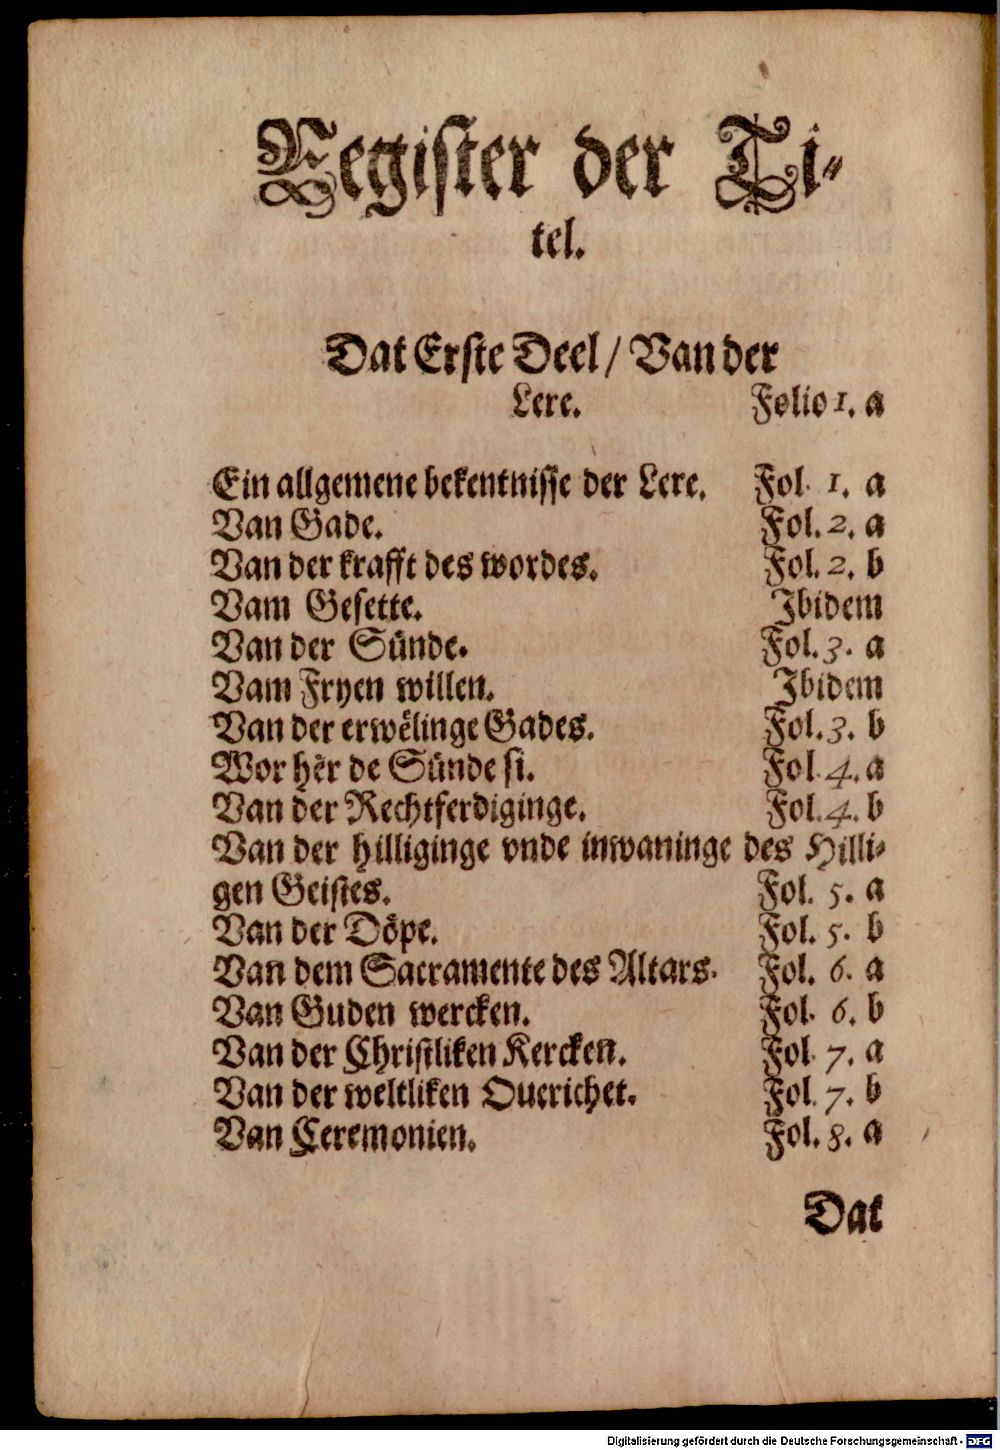 Register der Ti⸗
tel.
Dat Erste Deel / Van der
Lere. Folio 1. a
Ein allgemene bekentnisse der Lere. Fol. 1. a
Van Gade. Fol. 2. a
Van der krafft des wordes. Fol. 2. b
Vam Gesette. Ibidem
Van der Sünde. Fol. 3. a
Vam Fryen willen. Ibidem
Van der erwëlinge Gades. Fol. 3. b
Wor hër de Sünde si. Fol. 4. a
Van der Rechtferdiginge. Fol. 4. b
Van der hilliginge vnde inwaninge des Hilli⸗
gen Geistes. Fol. 5. a
Van der Döpe. Fol. 5. b
Van dem Sacramente des Altars. Fol. 6. a
Van Guden wercken. Fol. 6. b
Van der Christliken Kercken. Fol. 7. a
Van der weltliken Ouerichet. Fol. 7. b
Van Ceremonien. Fol. 8. a
Dat
Digitalisierung gefördert durch die Deutsche Forschungsgemeinschaft - DFG